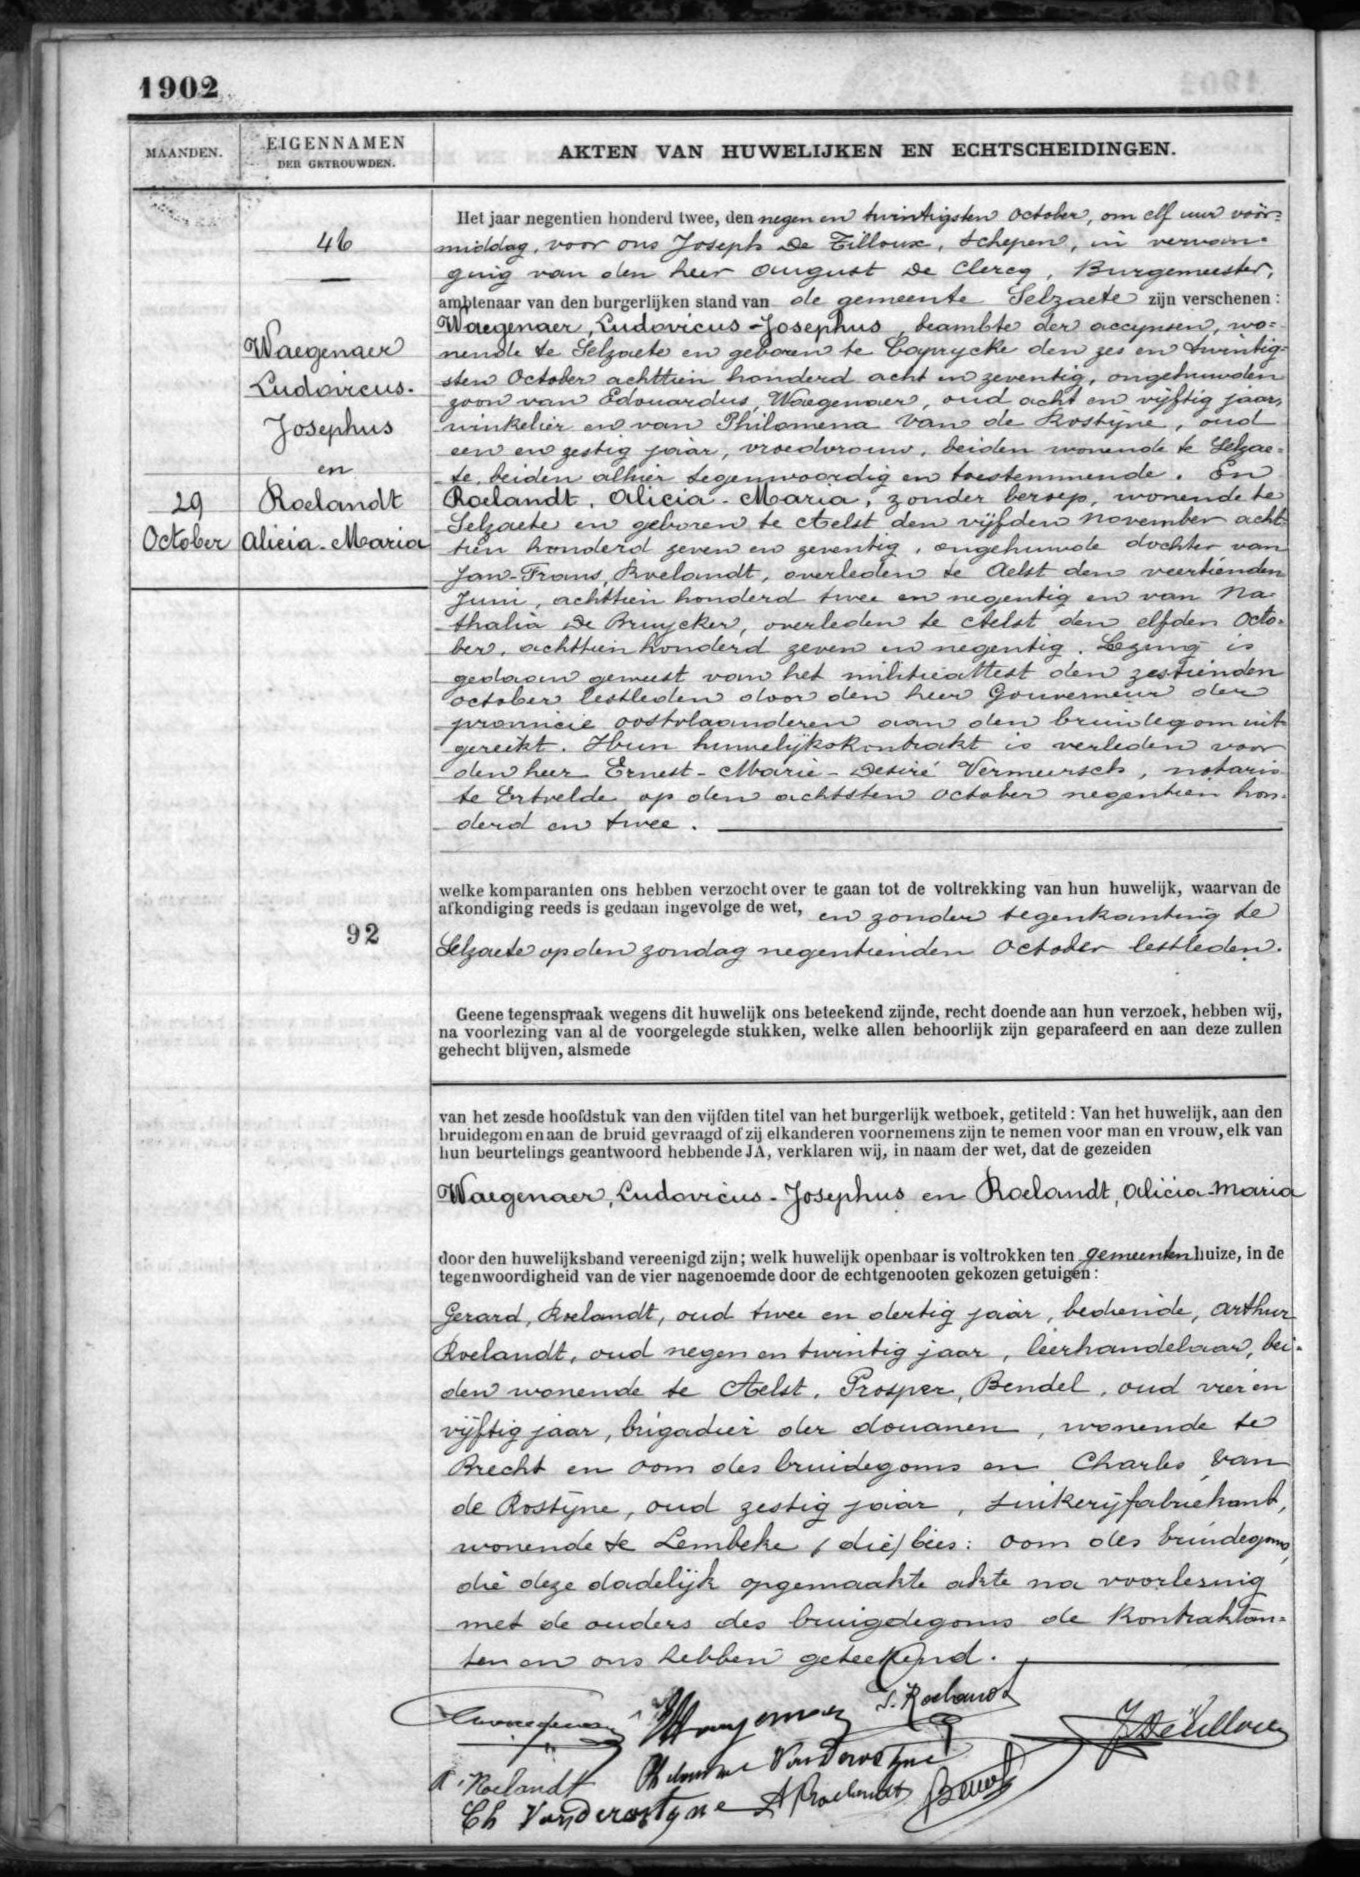 1902
MAANDEN.
EIGENNAMEN
DER GETROUWDEN.
AKTEN VAN HUWELIJKEN EN ECHTSCHEIDINGEN.
46
Waegenaer
Ludovicus-
Josephus
en
Roelandt
Alicia-Maria
29
October
92
Het jaar negentien honderd twee, den negen en twintigsten October, om elf uur vöör=
middag, voor ons Joseph De Tilloux, schepen, in vervan=
ging van den heer August De Clercq, Burgemeester,
ambtenaar van den burgerlijken stand van de gemeente Selzaete zijn verschenen :
Waegenaer, Ludovicus-Josephus, beambte der accynsen, wo=
nende te Selzaete en geboren te Caprycke den zes en twintig=
sten October achttien honderd acht en zeventig, ongehuwden
zoon van Edouardus, Waegenaer, oud acht en vijftig jaar,
winkelier en van Philomena Van de Rostijne, oud
een en zestig jaar, vroedvrouw, beiden wonende te Selzae=
te, beiden alhier tegenwoordig en toestemmende. En
Roelandt, Alicia-Maria, zonder beroep, wonende te
Selzaete en geboren te Aelst den vijfden November acht=
tien honderd zeven en zeventig, ongehuwde dochter van
Jan-Frans, Roelandt, overleden te Aelst den veertienden
Juni, achttien honderd twee en negentig en van Na=
thalia De Bruycker, overleden te Aelst den elfden Octo=
ber, achttien honderd zeven en negentig. Lezing is
gedaan geweest van het militieattest den zestienden
october lestleden door den heer Gouverneur der
provincie oostvlaanderen aan den bruidegom uit=
gereikt. Hun huwelijkskontrakt is verleden voor
den heer Ernest-Marie-Desiré Vermeersch, notaris
te Ertvelde op den achtsten October negentien hon=
derd en twee.
welke komparanten ons hebben verzocht over te gaan tot de voltrekking van hun huwelijk, waarvan de
afkondiging reeds is gedaan ingevolge de wet, en zonder tegenkanting te
Selzaete op den zondag negentienden October lestleden.
Geene tegenspraak wegens dit huwelijk ons beteekend zijnde, recht doende aan hun verzoek, hebben wij,
na voorlezing van al de voorgelegde stukken, welke allen behoorlijk zijn geparafeerd en aan deze zullen
gehecht blijven, alsmede
van het zesde hoofdstuk van den vijfden titel van het burgerlijk wetboek, getiteld : Van het huwelijk, aan den
bruidegom en aan de bruid gevraagd of zij elkanderen voornemens zijn te nemen voor man en vrouw, elk van
hun beurtelings geantwoord hebbende JA, verklaren wij, in naam der wet, dat de gezeiden
Waegenaer, Ludovicus-Josephus en Roelandt, Alicia-Maria
door den huwelijksband vereenigd zijn; welk huwelijk openbaar is voltrokken ten gemeentenhuize, in de
tegenwoordigheid van de vier nagenoemde door de echtgenooten gekozen getuigen :
Gerard, Roelandt, oud twee en dertig jaar, bediende, Arthur
Roelandt, oud negen en twintig jaar, leerhandelaar, bei=
den wonende te Aelst, Prosper, Bendel, oud vier en
vijftig jaar, brigadier der douanen, wonende te
Brecht en oom des bruidegoms en Charles Van
de Rostijne, oud zestig jaar, suikerijfabriekant,
wonende te Lembeke (die) bies: oom des bruidegoms,
die deze dadelijk opgemaakte akte na voorlesing
met de ouders des bruigdegoms de kontraktan=
ten en ons hebben geteekend.
Waegenaer
Roelandt
J De Tilloux
A. Roelandt
Philomene Vanderostyne
Ch Vanderostyne
A Roelandt
Bendel